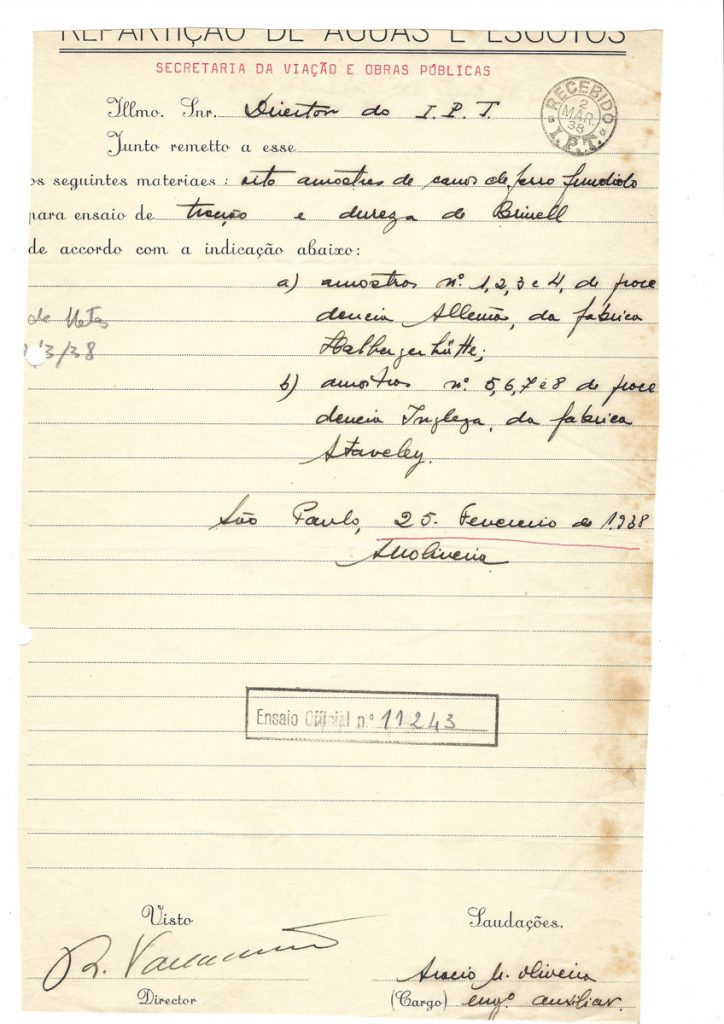 REPARTIÇÃO DE AGUAS E ESGOTOS
SECRETARIA DA VIAÇÃO E OBRAS PÚBLICAS
RECEBIDO
2
MAR.
38
I.P.T.
Illmo. Snr. Director do I. P. T.
Junto remetto a esse
os seguintes materiaes: oito amostras de canos de ferro fundido
para ensaio de tracção e dureza de Brinell
de accordo com a indicação abaixo:
a) amostras nº. 1, 2, 3 e 4, de proce
dencia Allemão, da fabrica
Halbergerhütte;
de Metas
3/38
b) amostras nº. 5, 6, 7 e 8 de proce
dencia Ingleza, da fabrica
Staveley.
São Paulo, 25. Fevereiro de 1938
Ensaio Official n.º 11243
Visto
Saudações.
Oliveira
Director
(Cargo) engº. auxiliar.